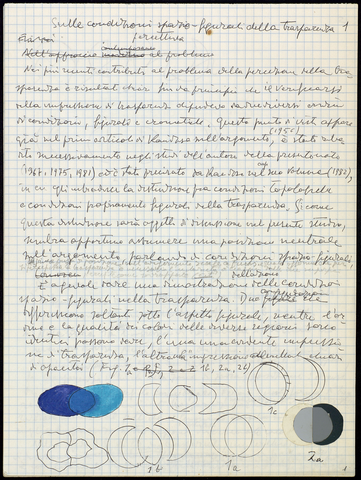 Sulle condizioni spazio-figurali della trasparenza 1
percettiva
al problema
Nei più recenti contributi al problema della percezione della tra
sparenza è risultato chiaro fin da principio che il verificarsi
della impressione di trasparenza dipendeva da due diversi ordini
di condizioni, figurali e cromatiche. Questo punto di vista appare
(1955)
già nel primo articolo di Kanizsa sull'argomento, è stato riba
dito successivamente negli studi dell'autore della presente nota
(1967, 1975, 1981) ed è stato precisato da Kanizsa nel suo volume (1980),
in cui egli introduce la distinzione fra condizioni topologiche
e condizioni propriamente figurali della trasparenza. Siccome
questa distinzione sarà oggetto di discussione nel presente studio,
sembra opportuno assumere una posizione neutrale
sull'argomento, parlando di condizioni spazio-figurali
della azione
È agevole dare una dimostrazione delle condizioni
spazio-figurali nella trasparenza. Due figure che
differiscono soltanto sotto l'aspetto figurale, mentre l'or
dine e la qualità dei colori delle diverse regioni sono
identici possono dare, l'una una evidente impressio
ne di trasparenza, l'altra una impressione altrettanto chiara
di opacità (Fig. 1b, 2a, 2b)
1c
1b
1a
2a
1